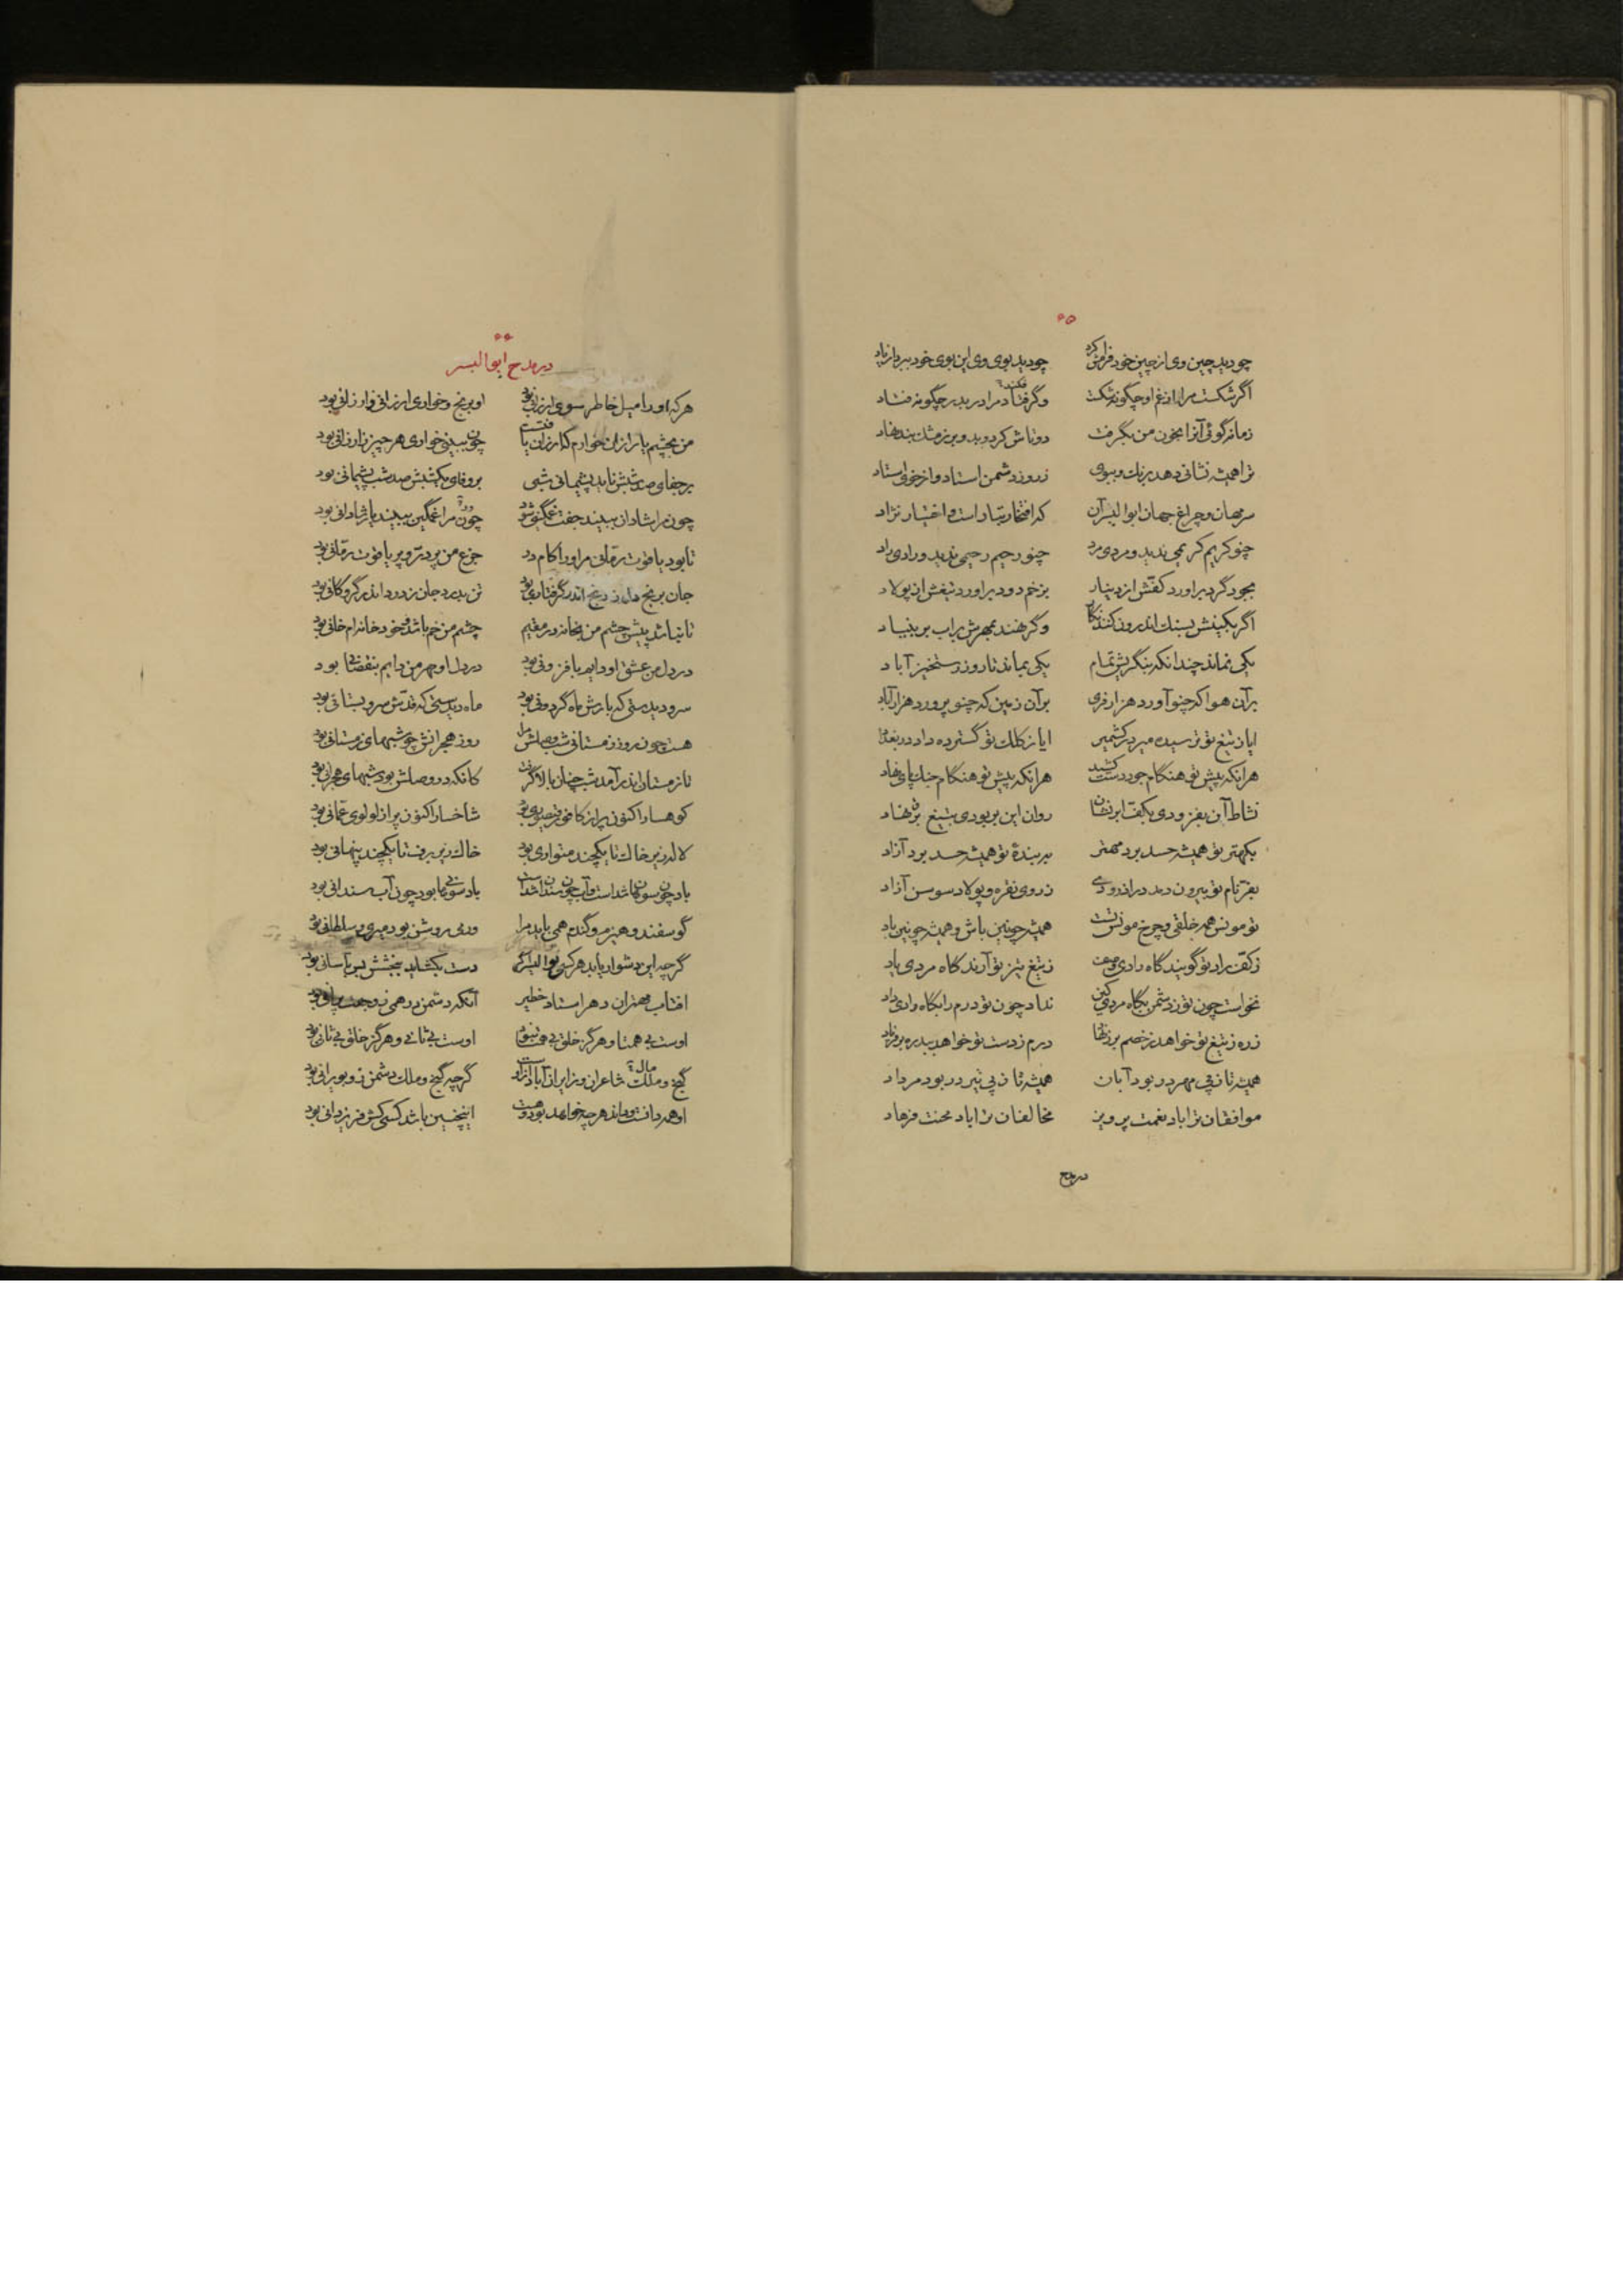 ۶۵
چو دید چین وی از چین خود فرامش کرد چو دید بوی وی این بوی خود ببرد از یاد
اگر شکست مرا از غم او چگونه شکست وگر فتاد مرا در بدر چگونه فتاد
زمانه گوئی آنرا بخون من بگرفت
ترا همیشه نشانی دهد برنگ و ببوی ز روز دشمن استاد و از خوی استاد
سر مهان و چراغ جهان ابوالیسر آن که افتخار تبار است و اختیار نژاد
چنو کریم کریمی ندید و مردی مرد چنو رحیم رحیمی ندید و رادی راد
بجود گرد براورد کفش از دینار بزخم دود براورد تیغش از پولاد
اگر بکینش بسنک اندرون کنند وگر نهند بمهرش بر آب بر بنیاد
یکی نماند چندانکه بنگریش تمام یکی بماند تا روز رستخیز آباد
بر آن هوا که چنو آورد هزار فری بر آن زمین که چنو پرورد هزار آباد
ایا ز تیغ تو ترسیده میر در کشمیر ایا ز کلک تو گسترده داد در بغداد
هر انکه پیش تو هنگام جود دست کشید هر انکه پیش تو هنگام جنک پای نهاد
نشاط آن بفزودی بکف روان این بربودی بتیغ
بکهتر تو همیشه حسد برد مهتر ببندهٔ تو همیشه حسد برد آزاد
بفر نام تو بیرون دمد در اندر دی ز روی نقره و پولاد سوسن آزاد
تو مونس همه خلقی و چرخ مونس تست همیشه چونین باش و همیشه چونین باد
ز کف راد تو گویند گاه رادی وصف ز تیغ تیز تو آرند گاه مردی یاد
نخواست چون تو ز دشمن بگاه مردی کین نداد چون تو درم را بگاه رادی داد
زره ز تیغ تو خواهد ز خصم درم ز دست تو خواهد
همیشه تا ز پی مهر در بود آبان همیشه تا ز پی تیر در بود مرداد
موافقان ترا باد نعمت پرویز مخالفان ترا باد محنت فرهاد
در مدح
۶۶
در مدح ابوالیسر
هر که او را میل خاطر سوی ارزانی بود او برنج و خواری ارزانی و ارزانی بود
من بچشم یار ازان خوارم که ارزان چون ببینی خواری هر چیز ز ارزانی بود
بر جفای صد شبش ناید پشیمانی شبی بر وفای یکشبش صد شب پشیمانی بود
چون مرا شادان ببیند جفت غمگینی شود چون مرا غمگین ببیند یار شادانی بود
تا بود یاقوت رمانی مر او را کام در جزع من پر در و پر یاقوت رمانی بود
جان برنج دل ز رنج اندر گرفتاری بود تن بدرد جان ز درد اندر گروگانی بود
تا نباشد پیش چشم من بخانه در مقیم چشم من خم باشد و خود خانه‌ام خانی بود
در دل من عشق او دایم بافزونی بود در دل او مهر من دایم بنقصانی بود
سرو دیدستی که بارش ماه گردونی بود ماه دیدستی که قدش سرو بستانی بود
هست چون روز زمستانی شب وصلش مرا روز هجرانش چو شبهای زمستانی بود
تا زمستان اندر آمد شب چنان بالا گرفت کانکه در وصلش بود شبهای هجرانی بود
کوهسار اکنون پر از کافور قیصوری بود شاخسار اکنون پر از لولوی عمانی بود
لاله در زیر خاک تا یکچند متواری بود خاک زیر برف تا یکچند پنهانی بود
باد چون سوهانها شد است و آب چون سندان شدست باد سوهانها بود چون آب سندانی بود
گوسفند و هیزم و گندم همی باید مرا
گرچه این دشوار یابد هر کسی بوالیسر دست بگشاید ببخشش بس بآسانی بود
افتاب مهتران دهر استاد خطیر آنکه دشمن را همی زو
اوست بی همتا و هرگز خلق بی اوست بی ثانی و هرگز خلق بی ثانی بود
گنج و ملک شاعران و زایران آباد ازو گرچه گنج و ملک دشمن زو بویرانی بود
او همه دانست و داند هرچه خواهد بود و هست اینچنین باشد کسی کش فر یزدانی بود